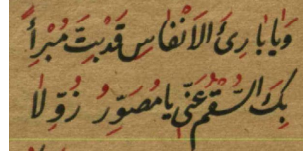 وَيَا بَارِئَ الْاَنْفَاسِ قَدْ بِتُّ مُبْرِأً
بِكَ السُّقْمُ عَنِّي يَا مُصَوِّرُ زُوِّلَا